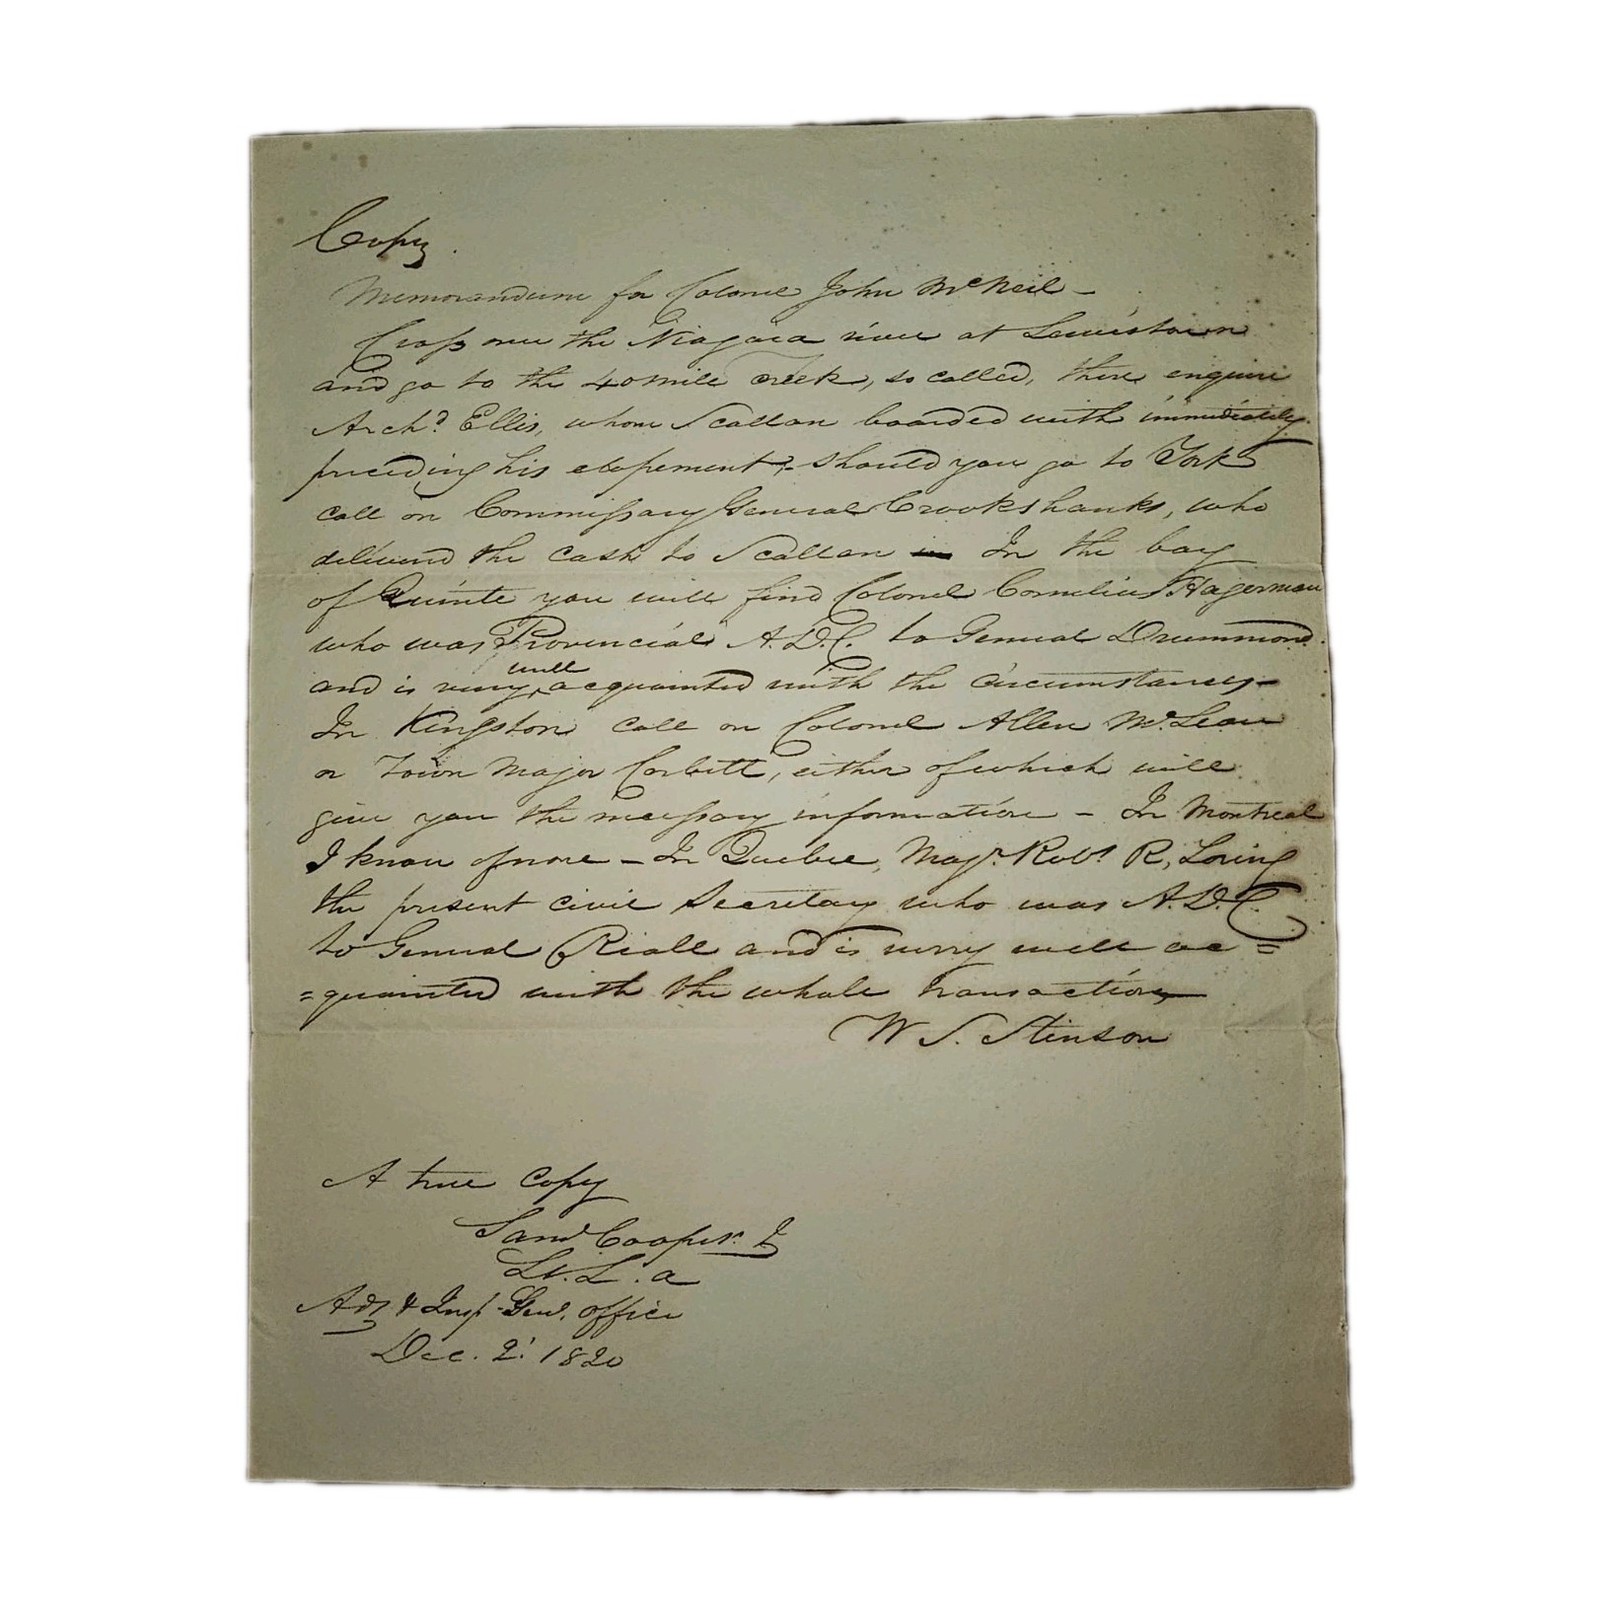 Copy.
Memorandum for Colonel John McNeil -
Cross over the Niagara river at Lewistown
and go to the 40 mile Creek, so called, there enquire
Archd. Ellis, whom Scallan boarded with immediately
preceding his elopement, - should you go to York
call on Commissary General Crookshanks, who
delivered the cash to Scallan In the bay
of Quinte you will find Colonel Cornelius Hagerman
who was Provincial A.D.C. to General Drummond.
and is very well acquainted with the circumstances -
In Kingston call on Colonel Allen McLean
or Town Major Corbett, either of which will
give you the necessary information - In Montreal
I know of none - In Quebec, Majr. Robt. R, Loring
the present civil Secretary who was A.D.C.
to General Riall and is verry well ac=
=quainted with the whole transaction
W S. Stinson
A true copy
Saml Cooper. J
Lt. L. a
Adj & Insp - Genl. office
Dec. 2. 1820